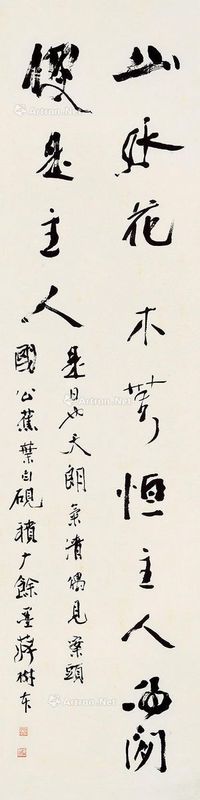 山花木恒主人得閒
便是主人
是日也天朗氣清偶見案頭
國公蕉葉白硯積餘墨蔣樹